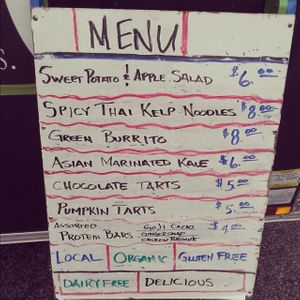 MENU
SWEET POTATO & APPLE SALAD $6.00
SPICY THAI KELP NOODLES $8.00
GREEN BURRITO $8.00
ASIAN MARINATED KALE $6.00
CHOCOLATE TARTS $5.00
PUMPKIN TARTS $5.00
ASSORTED PROTEIN BARS GOJI CACAO $4.00
GINGERSNAP
CASHEW
LOCAL ORGANIC GLUTEN FREE
DAIRY FREE DELICIOUS